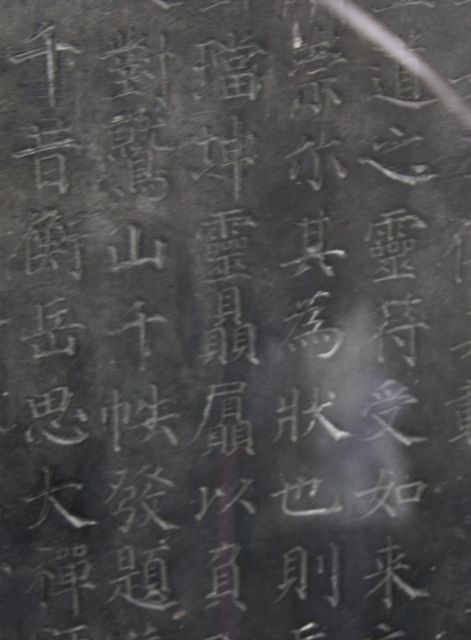 道之靈符受如来
崇尒其為狀也則
璫坤靈贔屭以負
對鷲山千帙發題
千昔衡岳思大禪